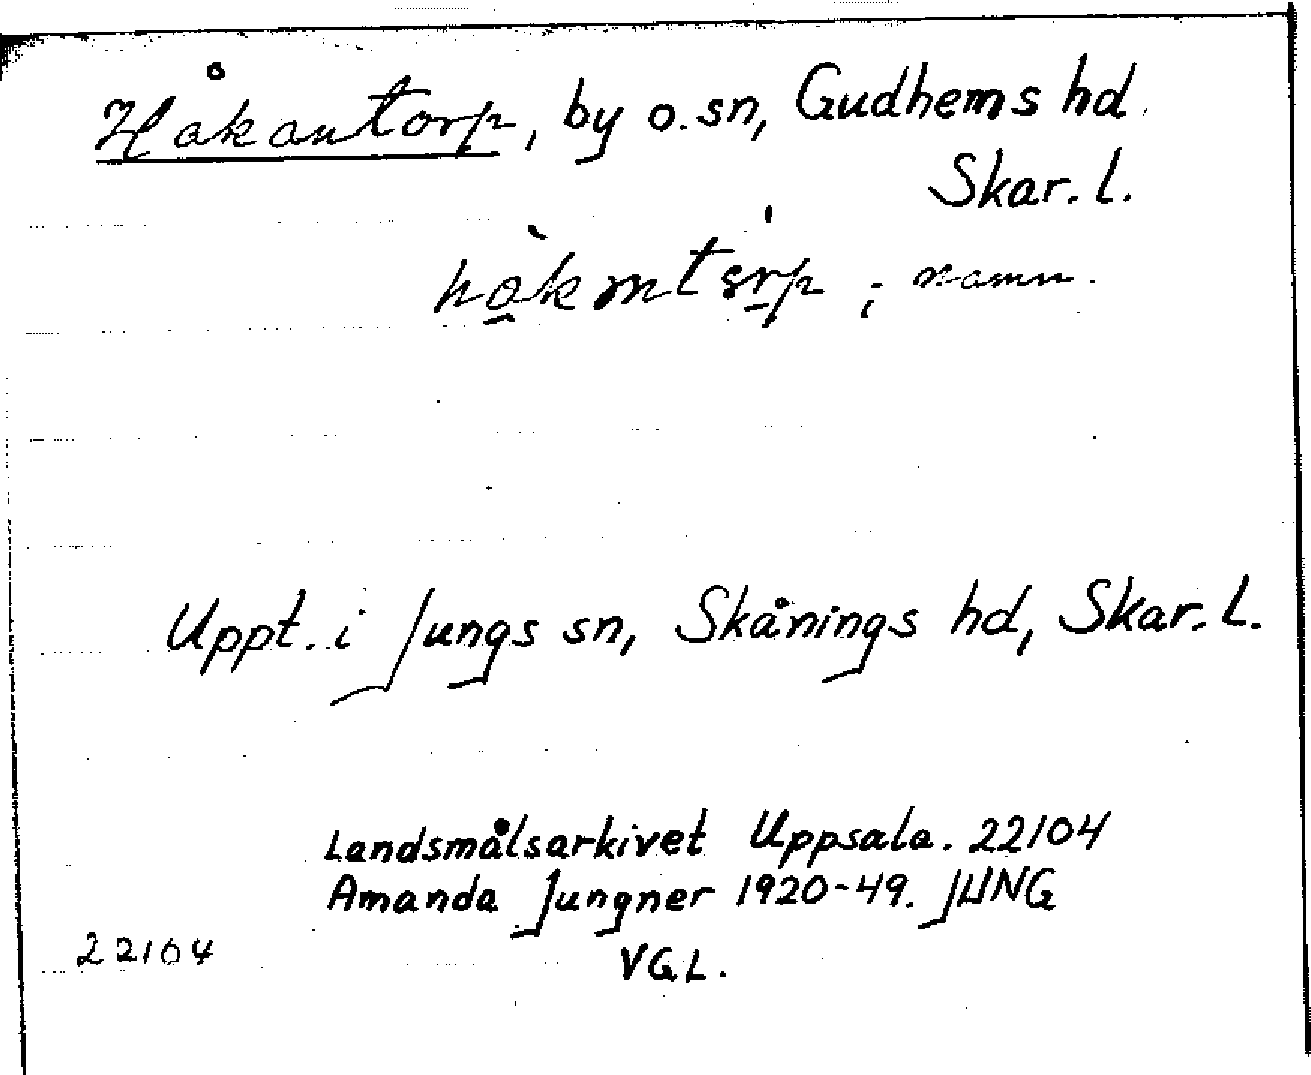 Håkantorp, by o. sn, Gudhems hd.
Skar. l.
; namn.
Uppt. i Jungs sn, Skånings hd, Skar. L.
Landsmålsarkivet Uppsala. 22104
Amanda Jungner 1920-49. JUNG
22104
VGL.